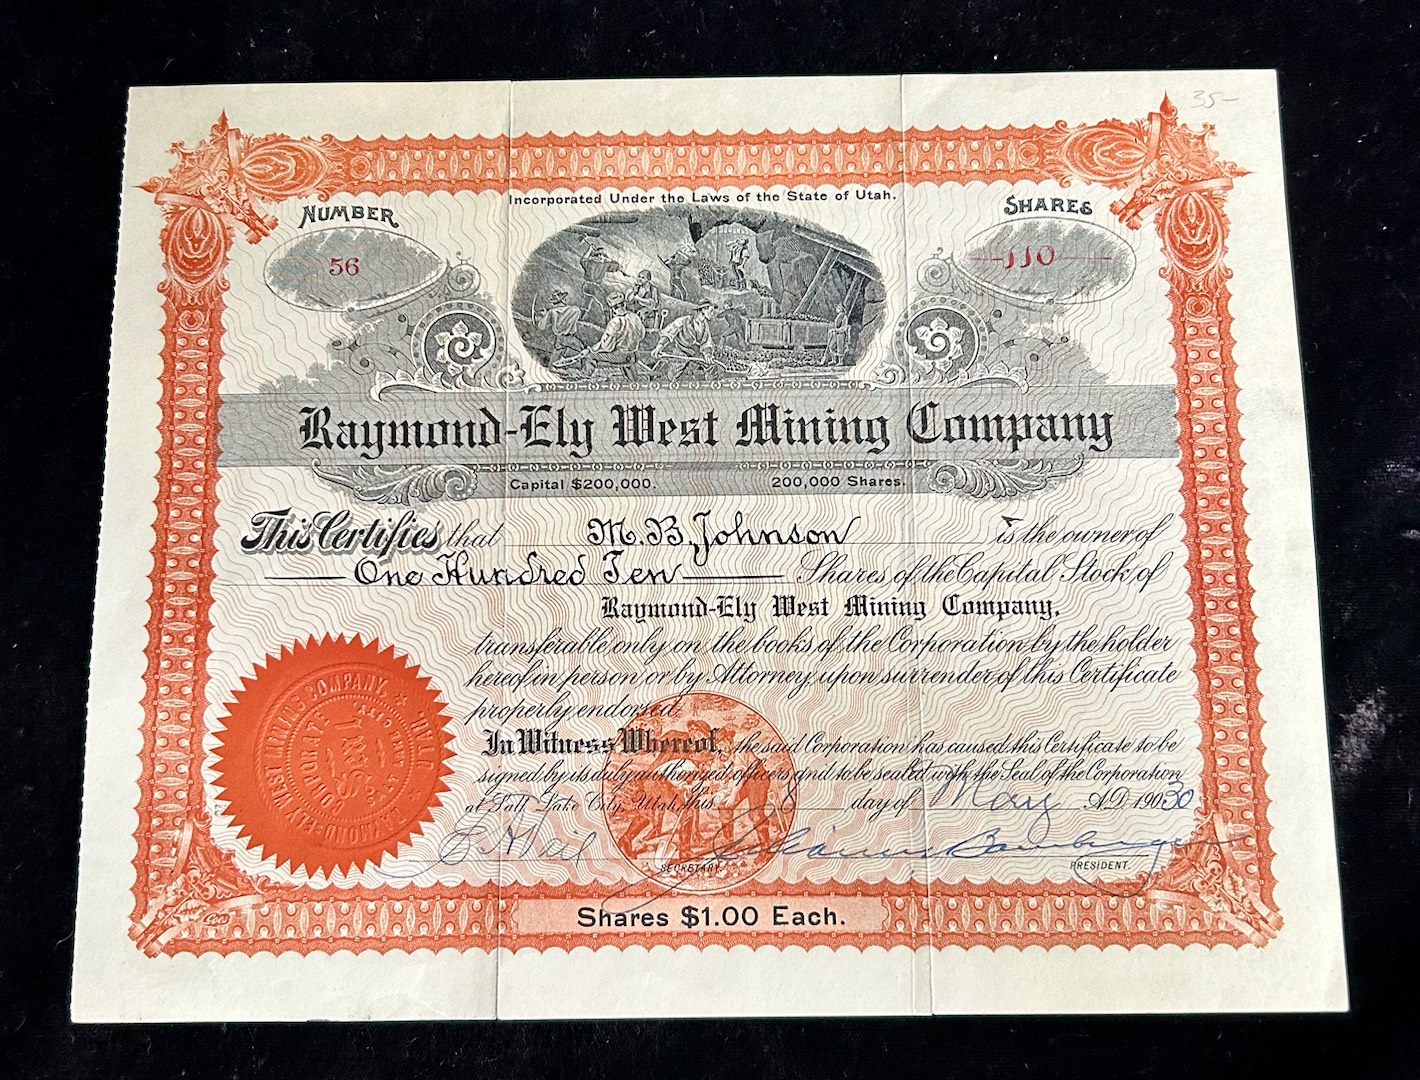 35-
Incorporated Under the Laws of the State of Utah.
NUMBER
SHARES
56
110
Raymond-Ely West Mining Company
Capital $200,000. 200,000 Shares.
This Certifies that M. B. Johnson is the owner of
One Hundred Ten Shares of the Capital Stock of
Raymond-Ely West Mining Company.
transferable only on the books of the Corporation by the holder
hereof in person or by Attorney, upon surrender of this Certificate
properly endorsed.
In Witness Whereof, the said Corporation has caused this Certificate to be
signed by its duly authorized officers and to be sealed with the Seal of the Corporation
at Salt Lake City, Utah, this 8 day of May A.D. 19030
Bamberger
SECRETARY.
PRESIDENT.
Shares $1.00 Each.
RAYMOND-ELY WEST MINING COMPANY,
UTAH
CORPORATE
SEAL